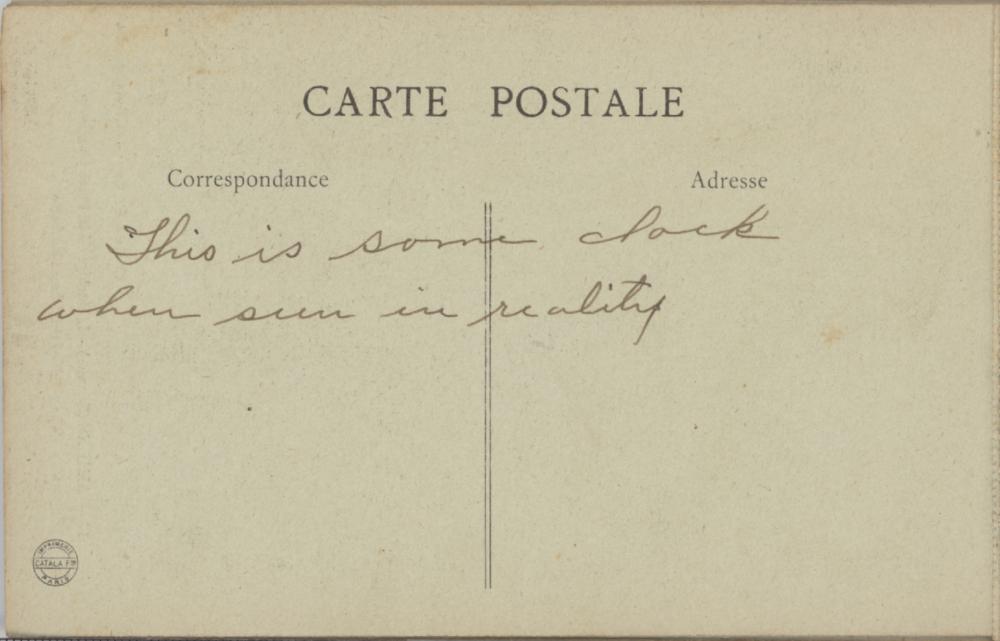 CARTE POSTALE
Correspondance
Adresse
This is some clock
when seen in reality
IMPRIMERIE
CATALA FRES
PARIS